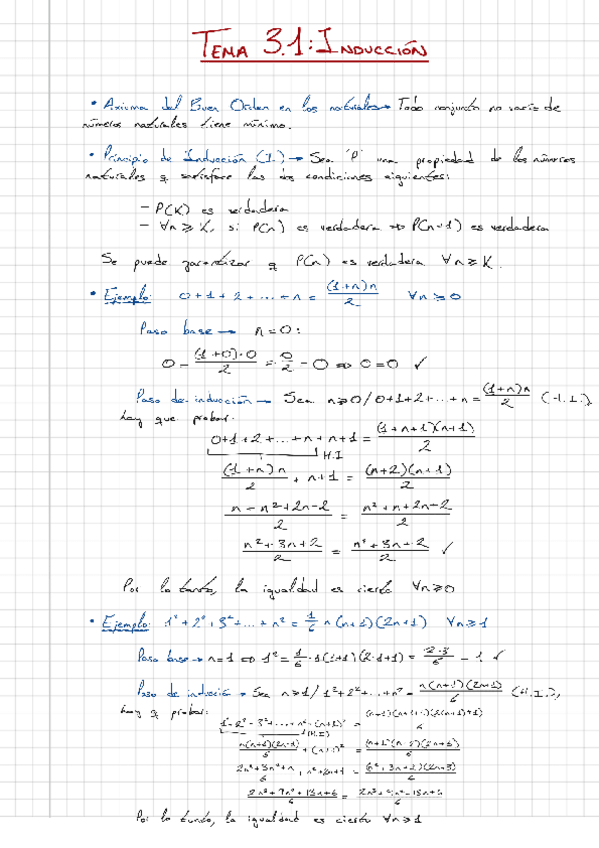 TEMA 3.1: INDUCCIÓN
• Axioma del Buen Orden en los naturales → Todo conjunto no vacío de
números naturales tiene mínimo.
• Principio de Inducción (I.) → Sea 'P' una propiedad de los números
naturales q satisface las dos condiciones siguientes:
- P(K) es verdadera
- ∀n ≥ K, si P(n) es verdadera ⇒ P(n+1) es verdadera
Se puede garantizar q P(n) es verdadera ∀n ≥ K.
• Ejemplo: 0+1+2+...+n = (1+n)n/2 ∀n ≥ 0
Paso base → n=0:
0 = (1+0)·0/2 = 0/2 = 0 ⇔ 0=0 ✓
Paso de inducción → Sea n≥0 / 0+1+2+...+n = (1+n)n/2 (H.I.),
hay que probar:
0+1+2+...+n+n+1 = (1+n+1)(n+1)/2
H.I
(1+n)n/2 + n+1 = (n+2)(n+1)/2
n+n²+2n+2/2 = n²+n+2n+2/2
n²+3n+2/2 = n²+3n+2/2 ✓
Por lo tanto, la igualdad es cierta ∀n≥0
• Ejemplo: 1²+2²+3²+...+n² = 1/6 n(n+1)(2n+1) ∀n≥1
Paso base → n=1 ⇔ 1² = 1/6 · 1(1+1)(2·1+1) = 2·3/6 = 1 ✓
Paso de inducción → Sea n≥1 / 1²+2²+...+n² = n(n+1)(2n+1)/6 (H.I.),
hay q probar:
1²+2²+3²+...+n²+(n+1)² = (n+1)(n+1+1)(2(n+1)+1)/6
(H.I)
n(n+1)(2n+1)/6 + (n+1)² = (n+1)(n+2)(2n+3)/6
2n³+3n²+n/6 + n²+2n+1 = (n²+3n+2)(2n+3)/6
2n³+9n²+13n+6/6 = 2n³+9n²+13n+6/6
Por lo tanto, la igualdad es cierta ∀n≥1